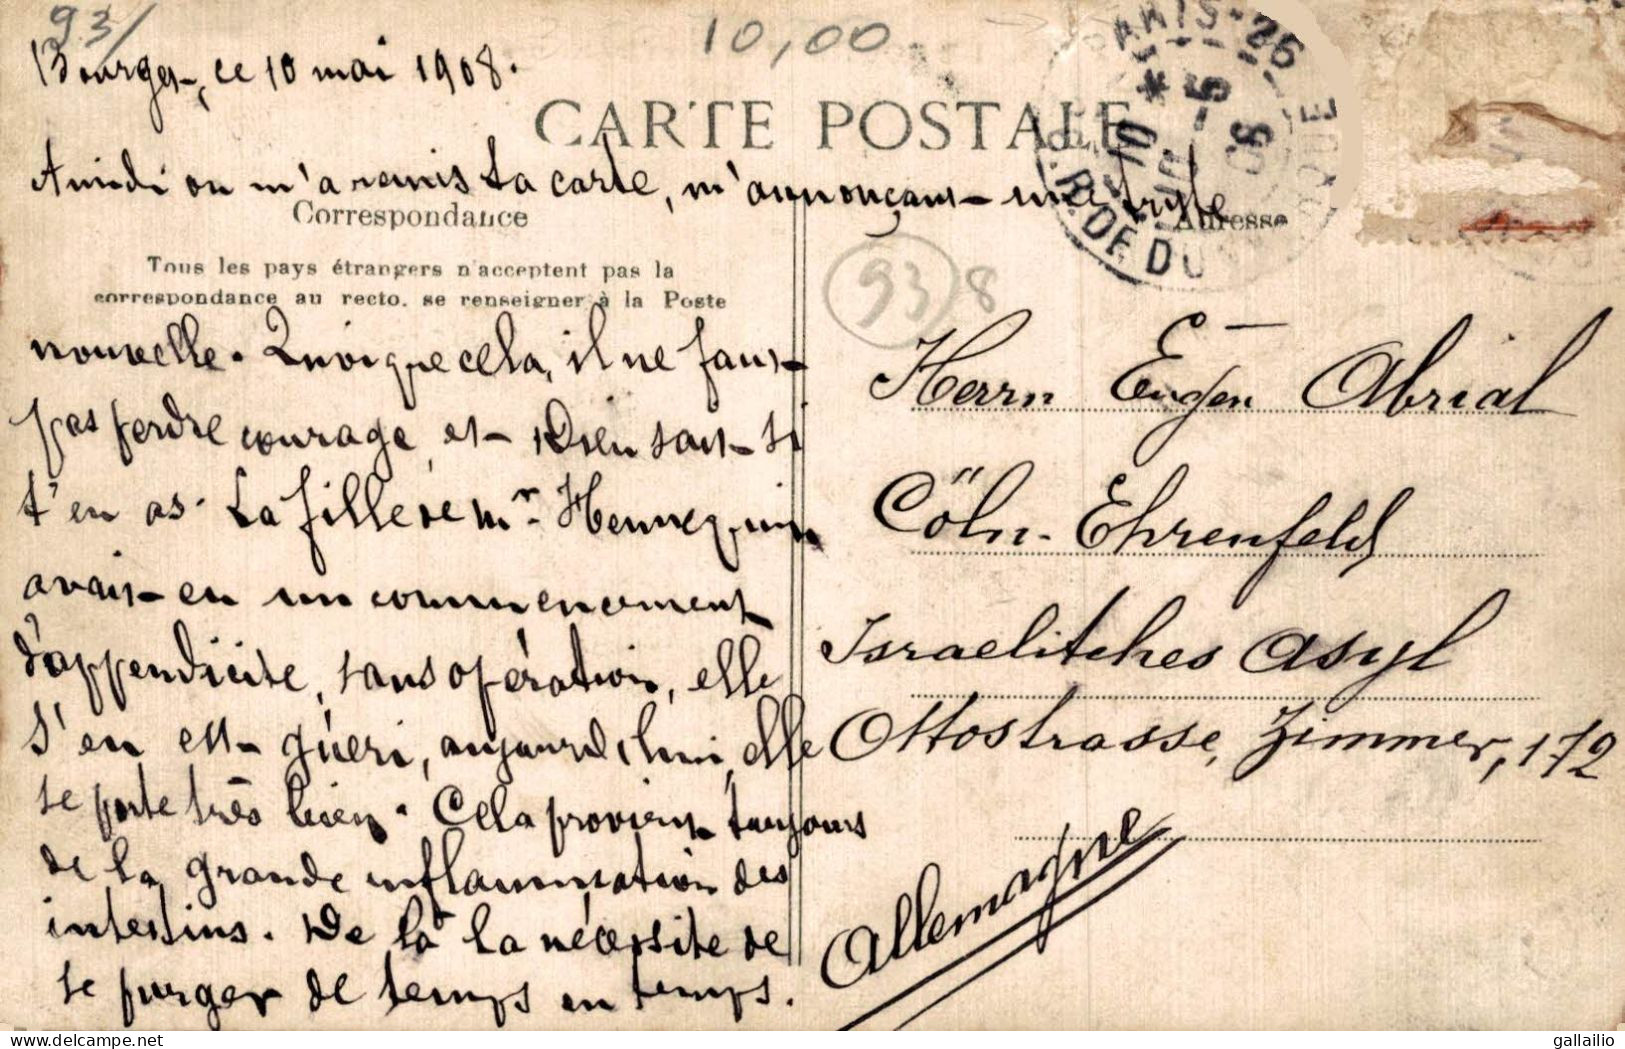 93/
10,00
Bourges, ce 10 mai 1908.
CARTE POSTALE
A midi on m'a remis ta carte, m'annonçant une triste
Correspondance
Adresse
Tous les pays étrangers n'acceptent pas la
correspondance au recto. se renseigner à la Poste
nouvelle. Quoique cela, il ne faut
pas perdre courage et Dieu sait si
t'en as. La fille de Mr. Hennequin
avait en un commencement
d'appendicite, sans opération, elle
s'en est guéri, aujourd'hui, elle
se porte très bien. Cela provient toujours
de la grande inflammation des
intestins. De là la nécessité de
se purger de temps en temps.
PARIS-26
* 10 -5 08
R. DE DU
93 8
Herrn Eugen Abrial
Cöln-Ehrenfeld
Israelitches Asyl
Ottostrasse, Zimmer, 172
Allemagne
delcampe.net
gallailio